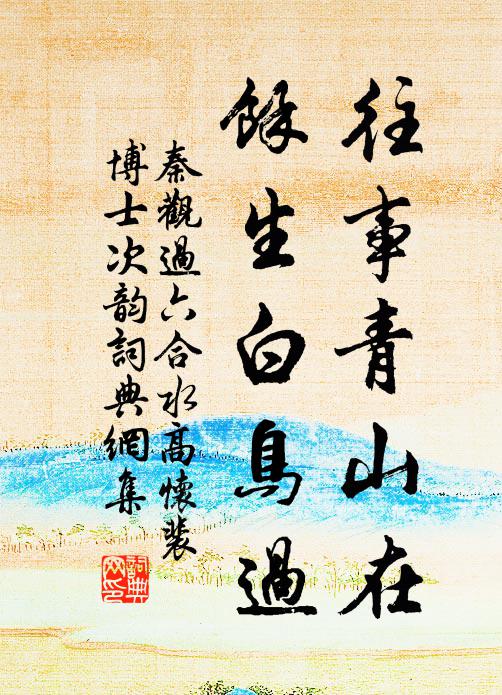 往事青山在
餘生白鳥過
秦觀過六合水高懷裴
博士次韵詞典網集
詞典
网印